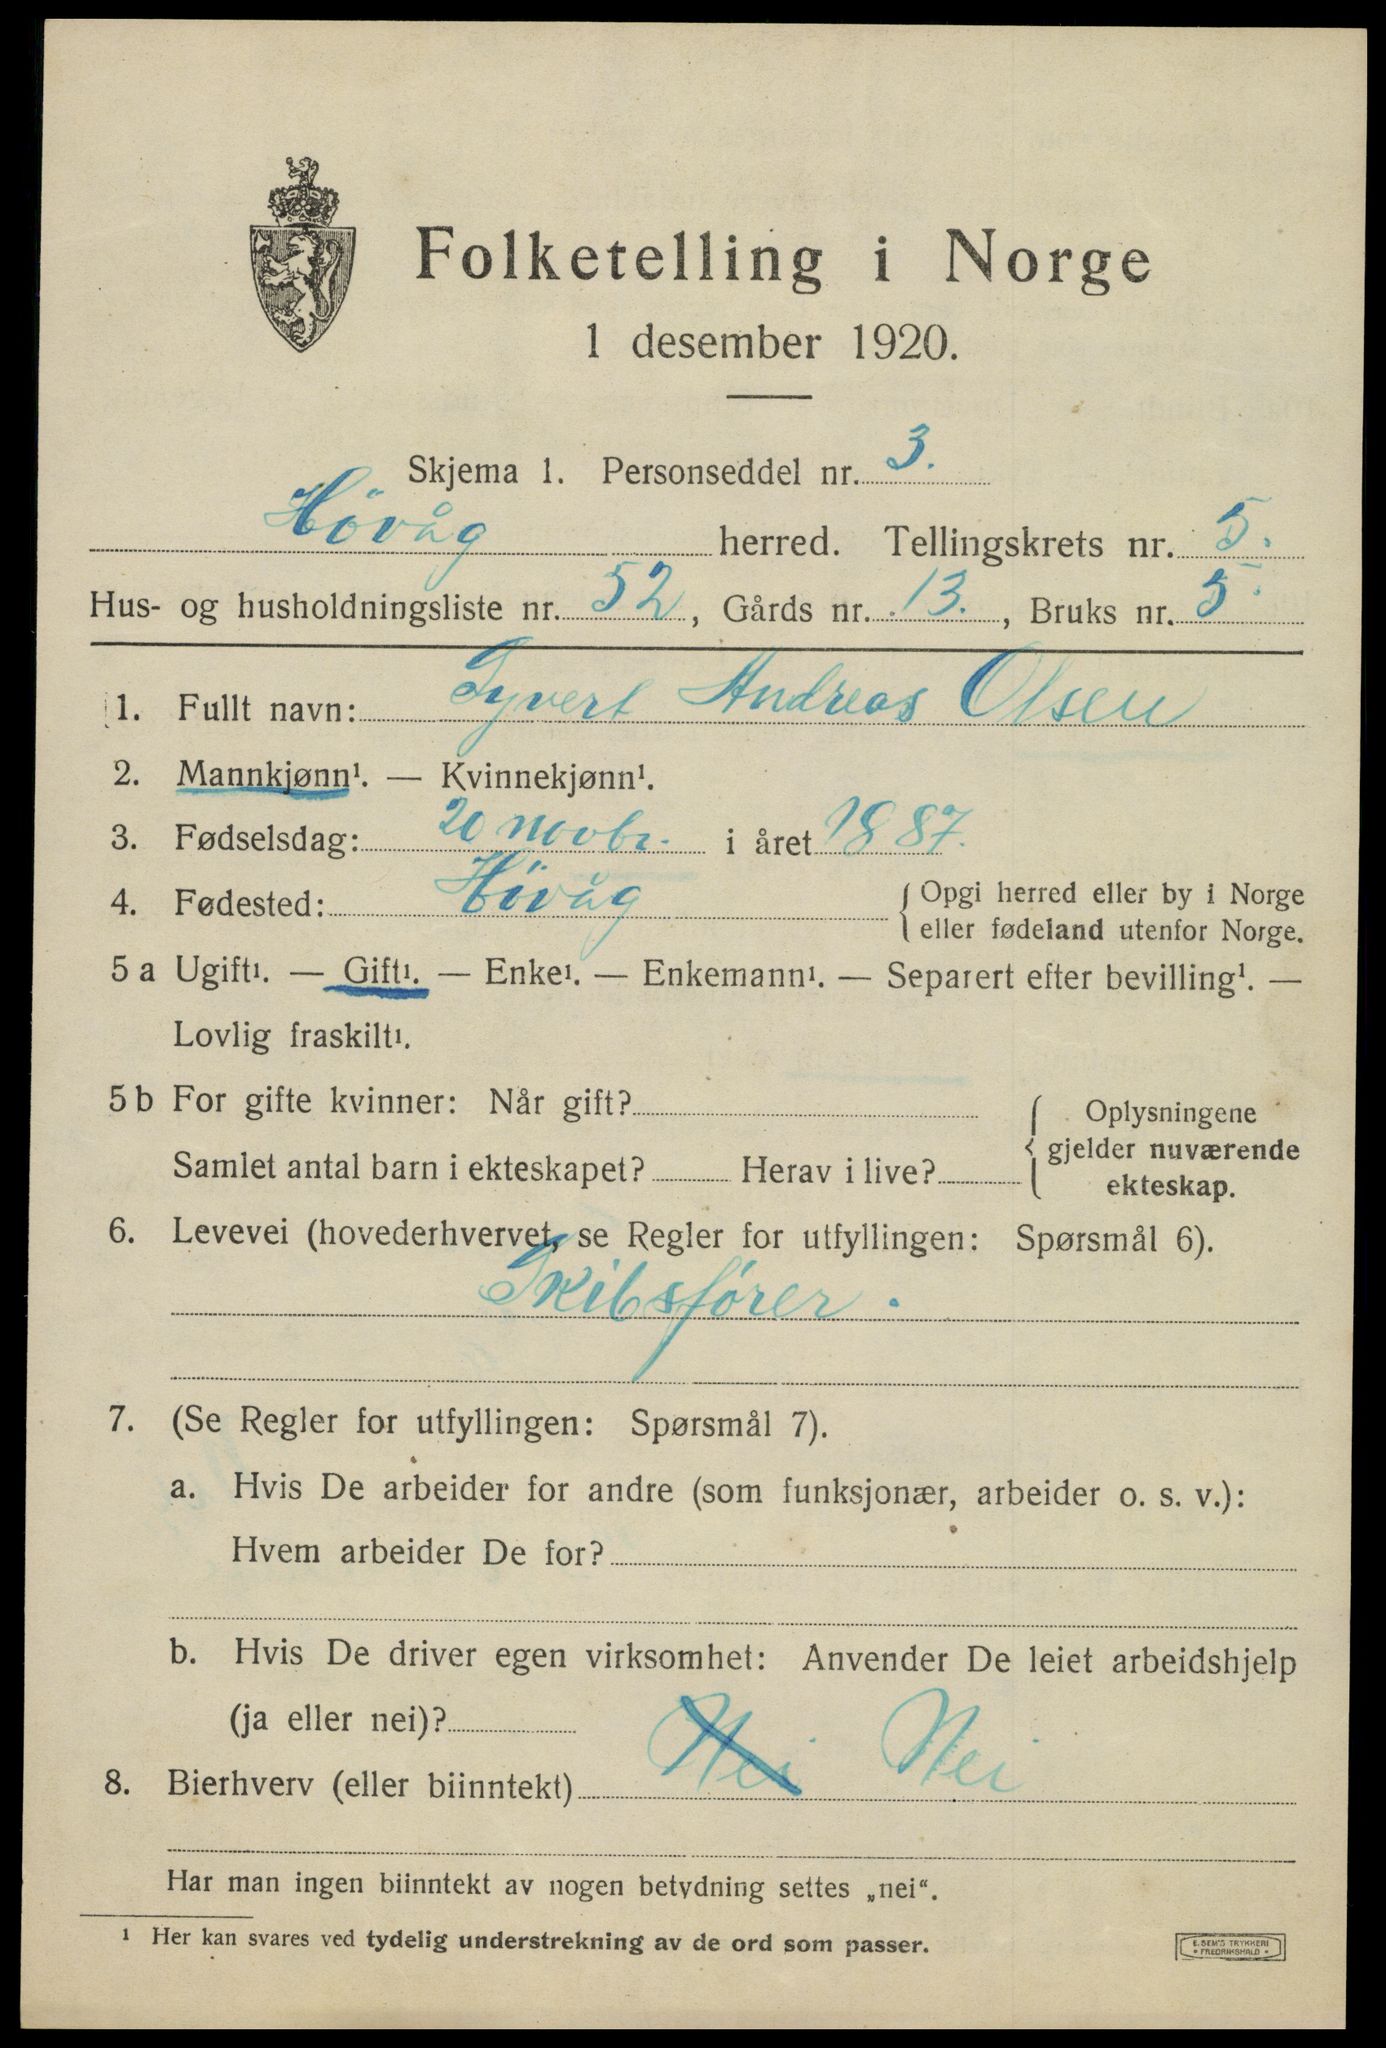 Folketelling i Norge
1 desember 1920.
Skjema 1. Personseddel nr. 3.
Høvåg herred. Tellingskrets nr. 5.
Hus- og husholdningsliste nr. 52, Gårds nr. 13., Bruks nr. 5
1. Fullt navn: Syvert Andreas Olsen
2. Mannkjønn¹. — Kvinnekjønn¹.
3. Fødselsdag: 20 novbr. i året 1887.
4. Fødested: Høvåg { Opgi herred eller by i Norge
eller fødeland utenfor Norge.
5 a Ugift¹. — Gift¹. — Enke¹. — Enkemann¹. — Separert efter bevilling¹. —
Lovlig fraskilt¹.
5 b For gifte kvinner: Når gift? { Oplysningene
gjelder nuværende
Samlet antal barn i ekteskapet? Herav i live? ekteskap.
6. Levevei (hovederhvervet, se Regler for utfyllingen: Spørsmål 6).
Skibsfører.
7. (Se Regler for utfyllingen: Spørsmål 7).
a. Hvis De arbeider for andre (som funksjonær, arbeider o. s. v.):
Hvem arbeider De for?
b. Hvis De driver egen virksomhet: Anvender De leiet arbeidshjelp
(ja eller nei)?
8. Bierhverv (eller biinntekt) Nei Nei
Har man ingen biinntekt av nogen betydning settes „nei“.
¹ Her kan svares ved tydelig understrekning av de ord som passer.
E. SEM'S TRYKKERI
• FREDRIKSHALD •